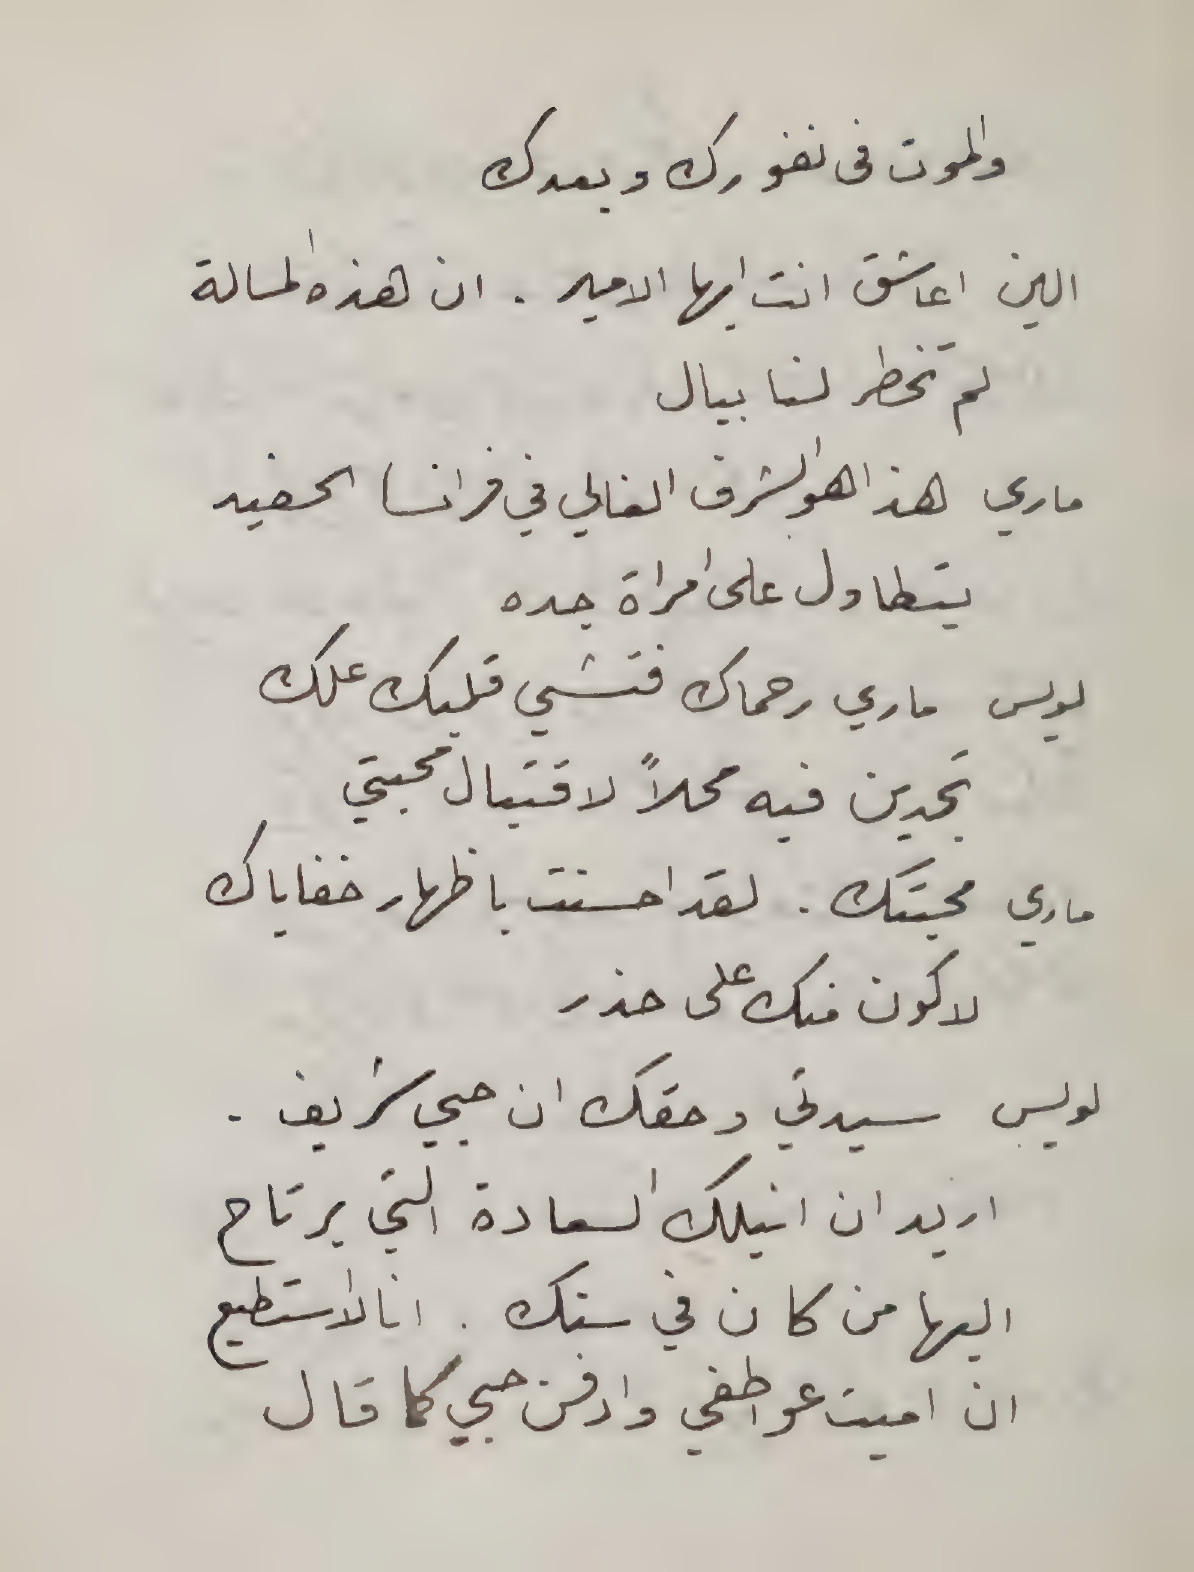 والموت في نفورك وبعدك
الين اعاشق انت ايها الامير . ان هذه المسالة
لم تخطر لنا ببال
ماري هذا هو الشرف الغالي في فرانسا الحفيد
يتطاول على امراة جده
لويس ماري رحماك فتشي قلبك علك
تجدين فيه محلاً لاقتبال محبتي
ماري محبتك . لقد احسنت باظهار خفاياك
لاكون منك على حذر
لويس سيدتي وحقك ان حبي شريف .
اريد ان انيلك السعادة التي يرتاح
اليها من كان في سنك . انا لا استطيع
ان اميت عواطفي وادفن حبي كما قال